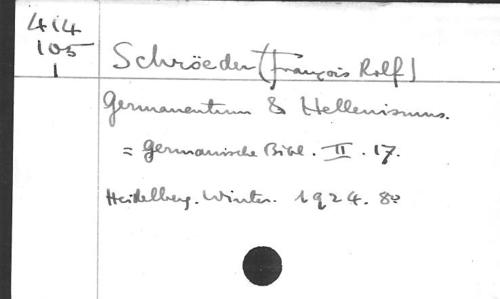 414
105
1
Schröeder (François Rolf)
Germanentum & Hellenismus.
= Germanische Bibl. II. 17.
Heidelberg. Winter. 1924. 8º